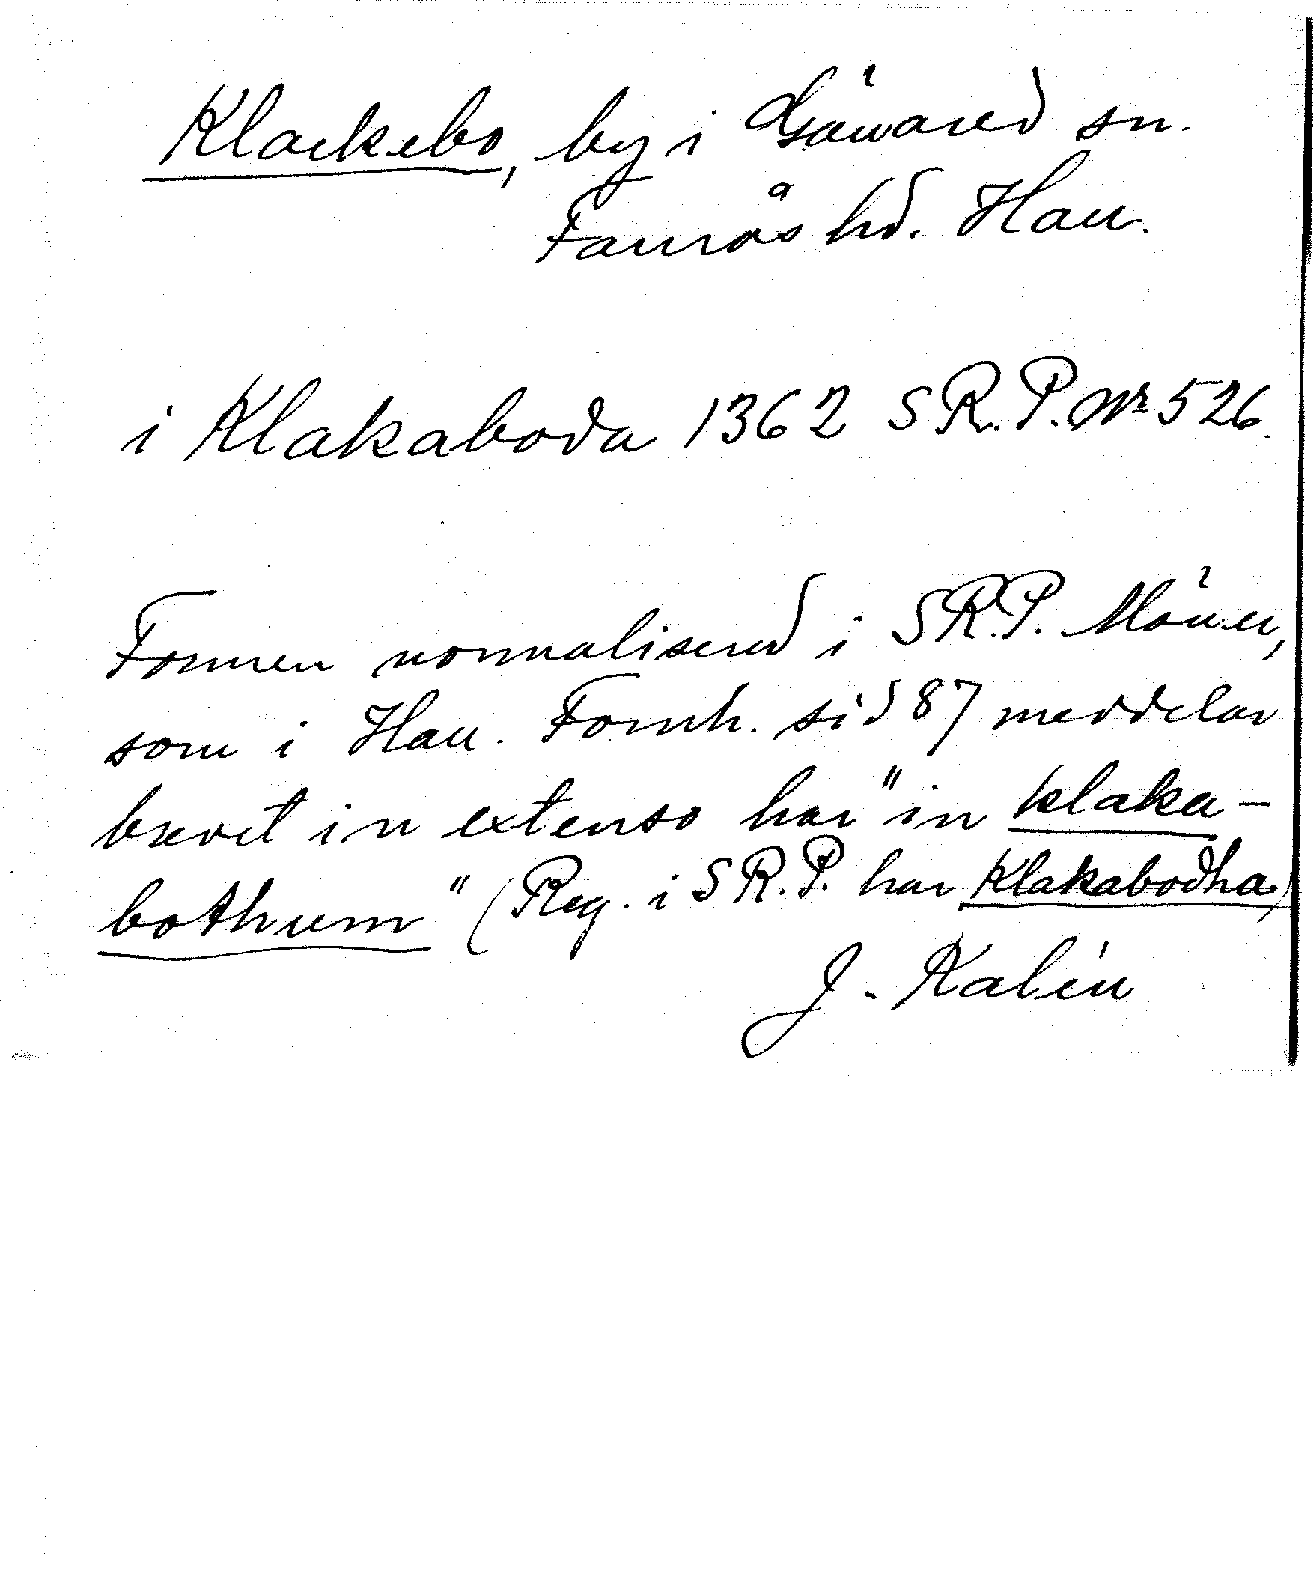 Klackebo, by i Gäwared sn.
Faurås hd. Hall.
i Klakaboda 1362 S R. P. Nr 526.
Formen normaliserad i S R. P. Möller,
som i Hall. Fornh. sid 87 meddelar
brevet in extenso har "in klaka-
bothum" (Reg. i S R. P. har Klakabodha)
J. Kalén